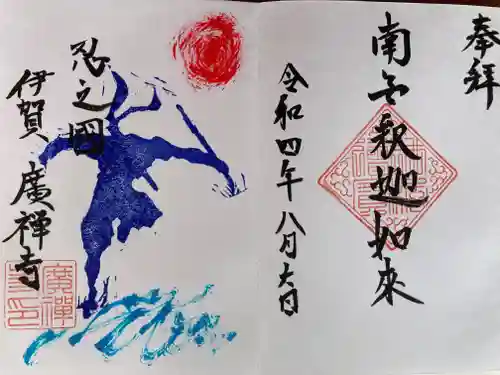 奉拝
南無釈迦如来
令和四年八月六日
忍之國
伊賀 廣禅寺